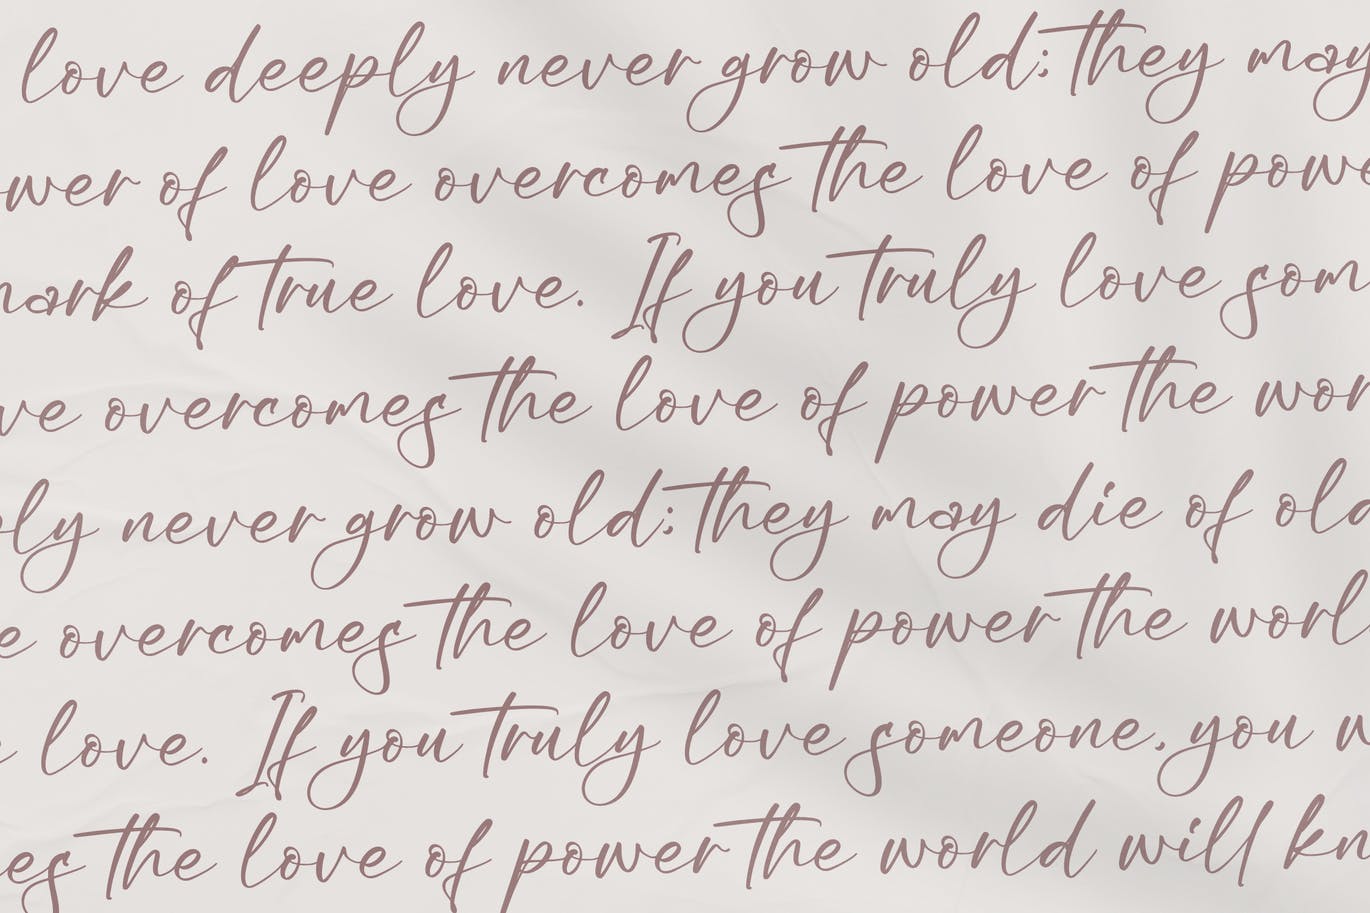 love deeply never grow old; they may
wer of love overcomes the love of powe
mark of true love. If you truly love som
ve overcomes the love of power the wor
ply never grow old; they may die of old
e overcomes the love of power the worl
e love. If you truly love someone, you w
es the love of power the world will kn